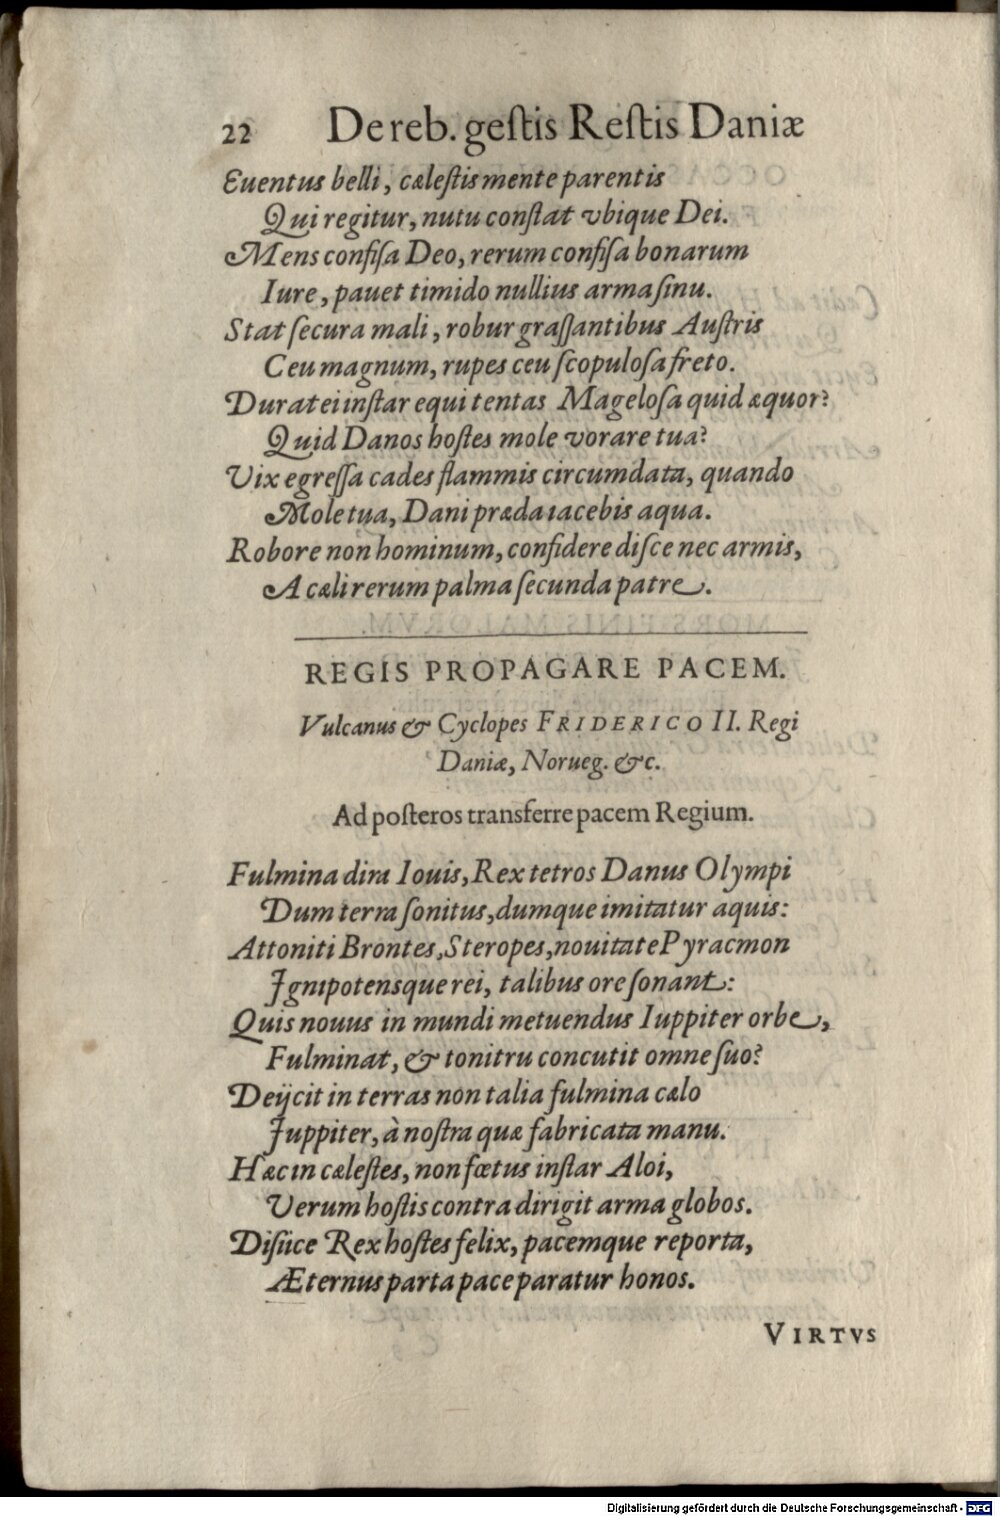 22 De reb. gestis Restis Daniæ
Euentus belli, cælestis mente parentis
Qui regitur, nutu constat vbique Dei.
Mens confisa Deo, rerum confisa bonarum
Iure, pauet timido nullius arma sinu.
Stat secura mali, robur grassantibus Austris
Ceu magnum, rupes ceu scopulosa freto.
Duratei instar equi tentas Magelosa quid æquor?
Quid Danos hostes mole vorare tua?
Vix egressa cades flammis circumdata, quando
Mole tua, Dani præda iacebis aqua.
Robore non hominum, confidere disce nec armis,
A cæli rerum palma secunda patre.
REGIS PROPAGARE PACEM.
Vulcanus & Cyclopes FRIDERICO II. Regi
Daniæ, Norueg. &c.
Ad posteros transferre pacem Regium.
Fulmina dira Iouis, Rex tetros Danus Olympi
Dum terra sonitus, dumque imitatur aquis:
Attoniti Brontes, Steropes, nouitate Pyracmon
Ignipotensque rei, talibus ore sonant:
Quis nouus in mundi metuendus Iuppiter orbe,
Fulminat, & tonitru concutit omne suo?
Deijcit in terras non talia fulmina cælo
Iuppiter, à nostra quæ fabricata manu.
Hæc in cælestes, non fœtus instar Aloi,
Verum hostis contra dirigit arma globos.
Disijce Rex hostes felix, pacemque reporta,
Æternus parta pace paratur honos.
VIRTVS
Digitalisierung gefördert durch die Deutsche Forschungsgemeinschaft - DFG